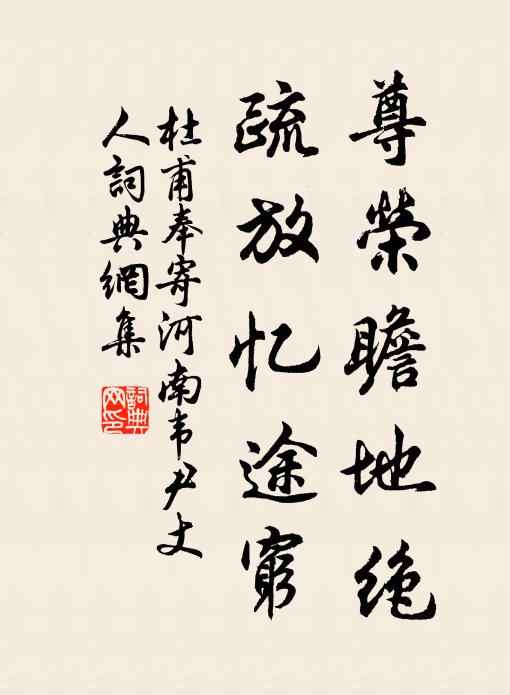 尊榮瞻地绝
疏放忆途窮
杜甫奉寄河南韦尹丈
人詞典網集
詞典
网印